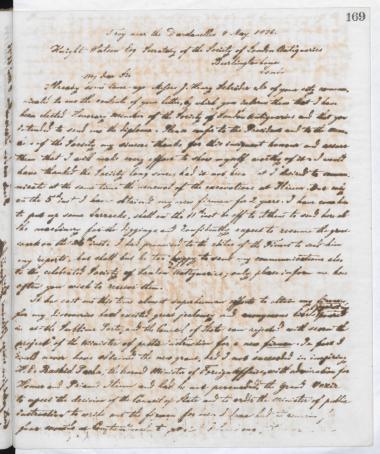 169
Troy near the Dardanelles 8 May 1876.
Knight Watson Esq Secretary of the Society of London Antiquaries
Burlington house
London
My dear Sir
Already some time ago Messrs J. Henry Schröder & Co of your city commu-
nicated to me the contents of your letter, by which you inform them that I have
been elected Honorary Member of the Society of London Antiquaries and that you
intended to send me the diploma. Please make to the President and to the mem-
bers of the Society my sincere thanks for this insignent honour and assure
them that I will make every effort to show myself worthy of it. I would
have thanked the Society long since, had it not been that I desired to commu-
nicate at the same time the renewal of the excavations at Hissar. But only
on the 5th inst I have obtained my new firman for 2 years. I have now here
to put up some barracks, shall on the 11th inst be off to Athens to send here all
the machinery for the diggings and confidently expect to resume the great
work on the inst. I had promised to the editor of the Times to send him
my reports, but shall but be too happy to send my communications also
to the celebrated Society of London Antiquaries; only please inform me how
often you wish to receive them.
It has cost me this time almost superhuman efforts to obtain my firman
for my discoveries had excited great jealousy and
at the Sublime Porte, and the Council of State even rejected with scorn the
project of the minister of public instruction for a new firman. In fact I
would never have obtained the new grant, had I not succeeded in inspiring
H. E. Rashid Pasha, the Grand Minister of Foreign Affairs, with admiration for
Homer and Priam's Ilium and had he not persuaded the Grand Vezir
to upset the decision of the Council of State and to order the minister of public
instruction to write out the firman for me. I have had to remain
four months at Constantinople to